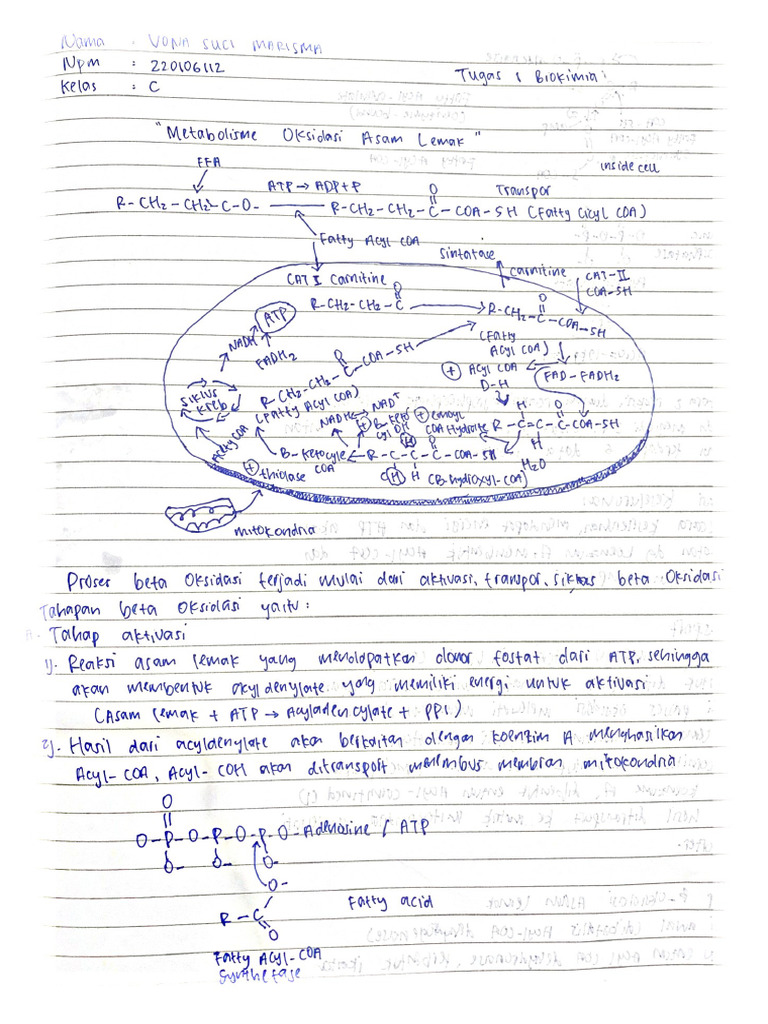 Nama : VONA SUCI MARISMA
Npm : 220106112
Tugas 1 Biokimia
Kelas : C
"Metabolisme Oksidasi Asam Lemak"
FFA
inside cell
ATP → ADP+P
Transpor
R-CH2-CH2-C-O- → R-CH2-CH2-C-COA-SH (Fatty Cicyl COA)
O
Fatty Acyl COA
sintatase
CAT I Carnitine
carnitine
CAT-II
COA-SH
R-CH2-CH2-C
O
R-CH2-C-COA-SH
O
(Fatty
Acyl COA)
ATP
NADH
FADH2
R-CH2-CH2-C-COA-SH
O
(Fatty Acyl COA)
+ Acyl COA
D-H
FAD-FADH2
siklus
kreb
Acetyl COA
NADH
NAD+
+ B-keto
cyl DH
+ enoyl
COA Hydrate
R-C=C-C-COA-SH
H
O
H
H2O
B-ketocyle
COA
+ thiolase
R-C-C-C-COA-SH
O
H H
(B-hydroxyl-COA)
mitokondria
Proses beta oksidasi terjadi mulai dari aktivasi, transpor, siklus beta oksidasi
Tahapan beta oksidasi yaitu :
A. Tahap aktivasi
1). Reaksi asam lemak yang mendapatkan donor fosfat dari ATP, sehingga
akan membentuk acyldenylate yang memiliki energi untuk aktivasi
(Asam lemak + ATP → Acyladencylate + PPI)
2). Hasil dari acyldenylate akan berkaitan dengan koenzim A menghasilkan
Acyl-COA, Acyl-COH akan ditransport menembus membran mitokondria
O
O-P-O-P-O-P-O-Adenosine / ATP
O- O- O-
O-
R-C
O
Fatty acid
Fatty Acyl-COA
synthetase